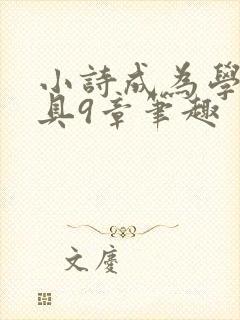 小詩成為學
具9章筆趣
文慶